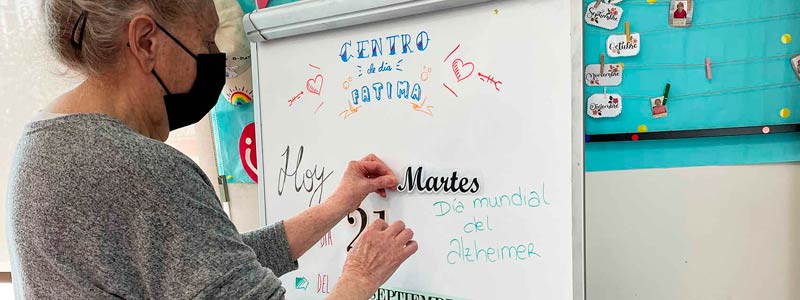 CENTRO
de día
FATIMA
Hoy
Martes
DÍA
21
Día mundial
del
alzheimer
DEL
SEPTIEMB
Septiembre
Octubre
Noviembre
Diciembre